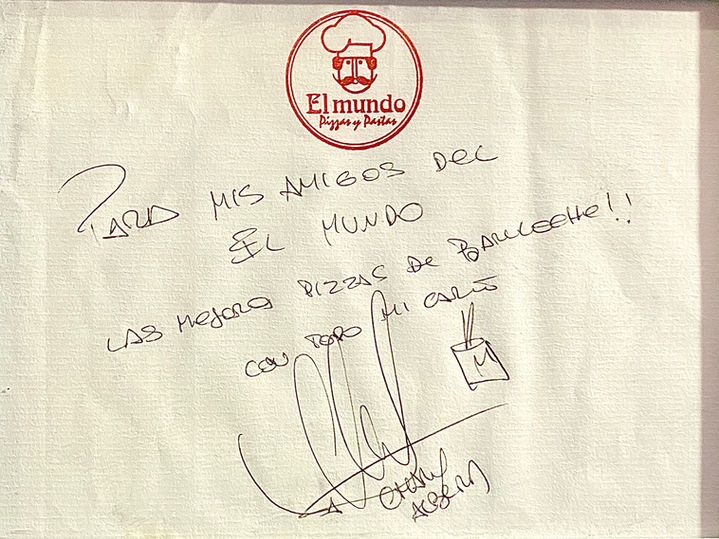 El mundo
Pizzas y Pastas
PARA MIS AMIGOS DEL
EL MUNDO
LAS MEJORES PIZZAS DE BARILOCHE!!
CON TODO MI CARIÑO
M